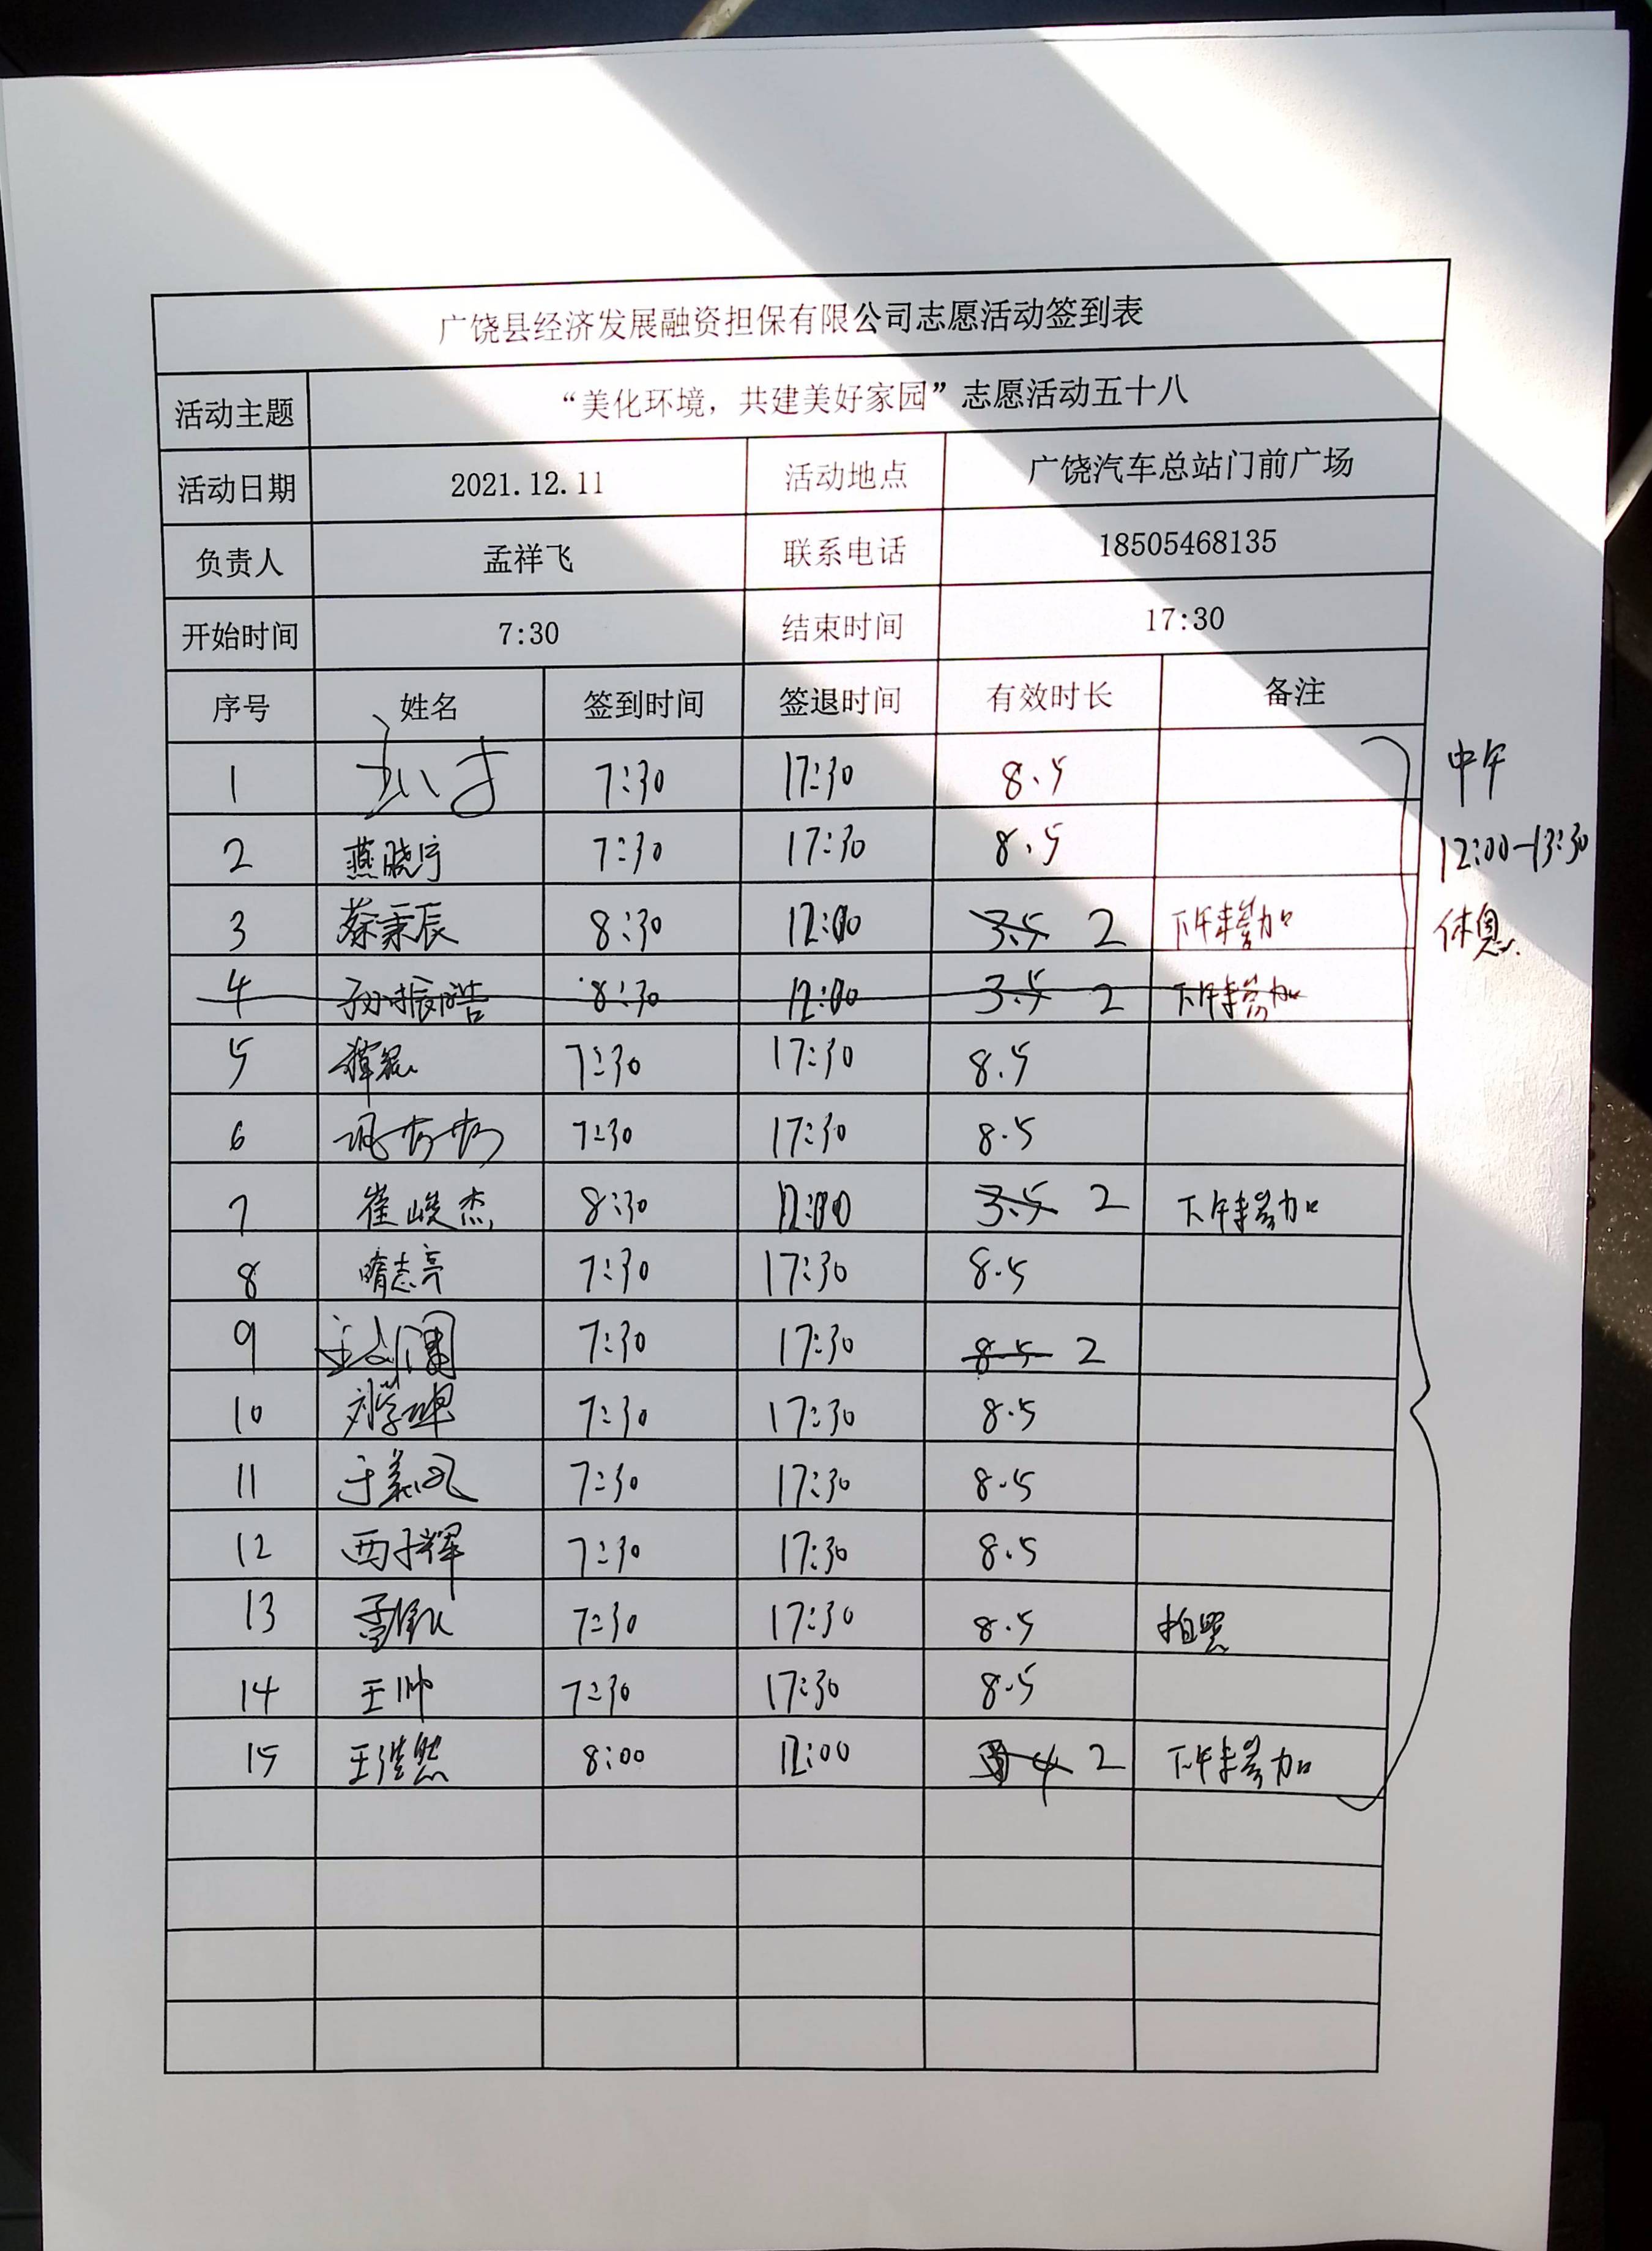 广饶县经济发展融资担保有限公司志愿活动签到表
活动主题 “美化环境，共建美好家园”志愿活动五十八
活动日期 2021.12.11 活动地点 广饶汽车总站门前广场
负责人 孟祥飞 联系电话 18505468135
开始时间 7:30 结束时间 17:30
序号 姓名 签到时间 签退时间 有效时长 备注
1 7:30 17:30 8.5
中午
2 燕晓宇 7:30 17:30 8.5
12:00-13:30
3 蔡秉辰 8:30 12:00 3.5 2 下午未参加
休息.
4 孙振皓 8:30 12:00 3.5 2 下午未参加
5 7:30 17:30 8.5
6 7:30 17:30 8.5
7 崔峻杰 8:30 12:00 3.5 2 下午未参加
8 隋志亮 7:30 17:30 8.5
9 7:30 17:30 8.5 2
10 7:30 17:30 8.5
11 7:30 17:30 8.5
12 西子辉 7:30 17:30 8.5
13 7:30 17:30 8.5 拍照
14 王帅 7:30 17:30 8.5
15 王浩然 8:00 12:00 4 2 下午未参加